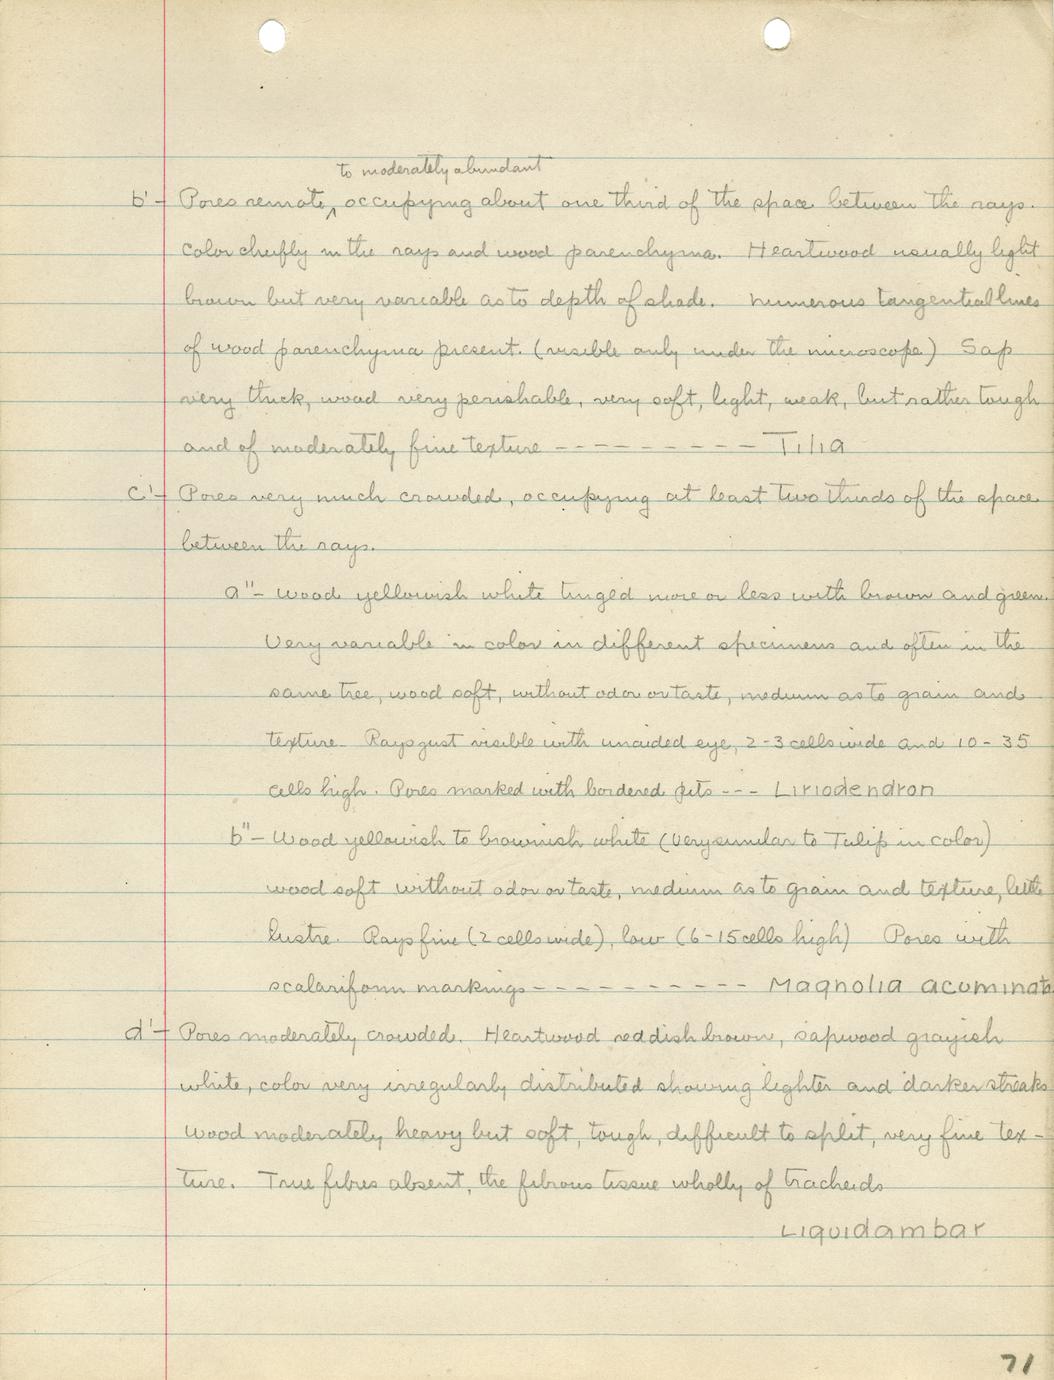 to moderately abundant
b'- Pores remote, ^ occupying about one third of the space between the rays.
Color chiefly in the rays and wood parenchyma. Heartwood usually light
brown but very variable as to depth of shade. Numerous tangential lines
of wood parenchyma present. (visible only under the microscope) Sap
very thick, wood very perishable, very soft, light, weak, but rather tough
and of moderately fine texture ---------- Tilia
c'- Pores very much crowded, occupying at least two thirds of the space
between the rays.
a"- Wood yellowish white tinged more or less with brown and green.
Very variable in color in different specimens and often in the
same tree, wood soft, without odor or taste, medium as to grain and
texture. Rays just visible with unaided eye, 2-3 cells wide and 10-35
cells high. Pores marked with bordered pits --- Liriodendron
b"- Wood yellowish to brownish white (Very similar to Tulip in color)
wood soft without odor or taste, medium as to grain and texture, little
lustre. Rays fine (2 cells wide), low (6-15 cells high) Pores with
scalariform markings ---------- Magnolia acuminata
d'- Pores moderately crowded. Heartwood reddish brown, sapwood grayish
white, color very irregularly distributed showing lighter and darker streaks
Wood moderately heavy but soft, tough, difficult to split, very fine tex-
ture. True fibres absent, the fibrous tissue wholly of tracheids
Liquidambar
71